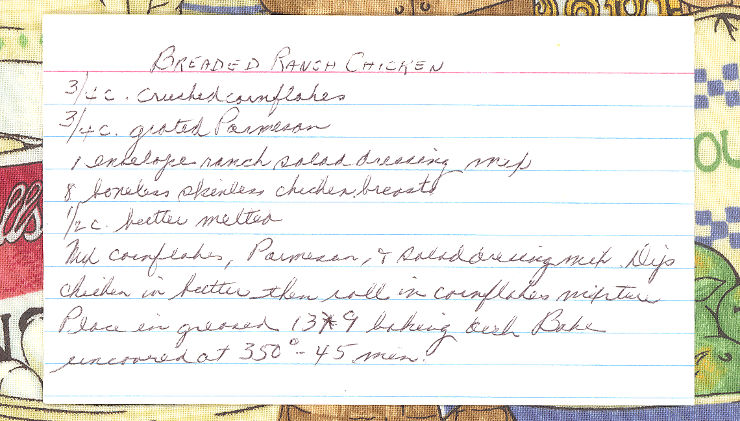 BREADED RANCH CHICKEN
3/4 c. crushed cornflakes
3/4 c. grated Parmesan
1 envelope ranch salad dressing mix
8 boneless skinless chicken breasts
1/2 c. butter melted
Mix cornflakes, Parmesan, & salad dressing mix Dip
chicken in butter then roll in cornflakes mixture
Place in greased 13x9 baking dish Bake
uncovered at 350° - 45 min.